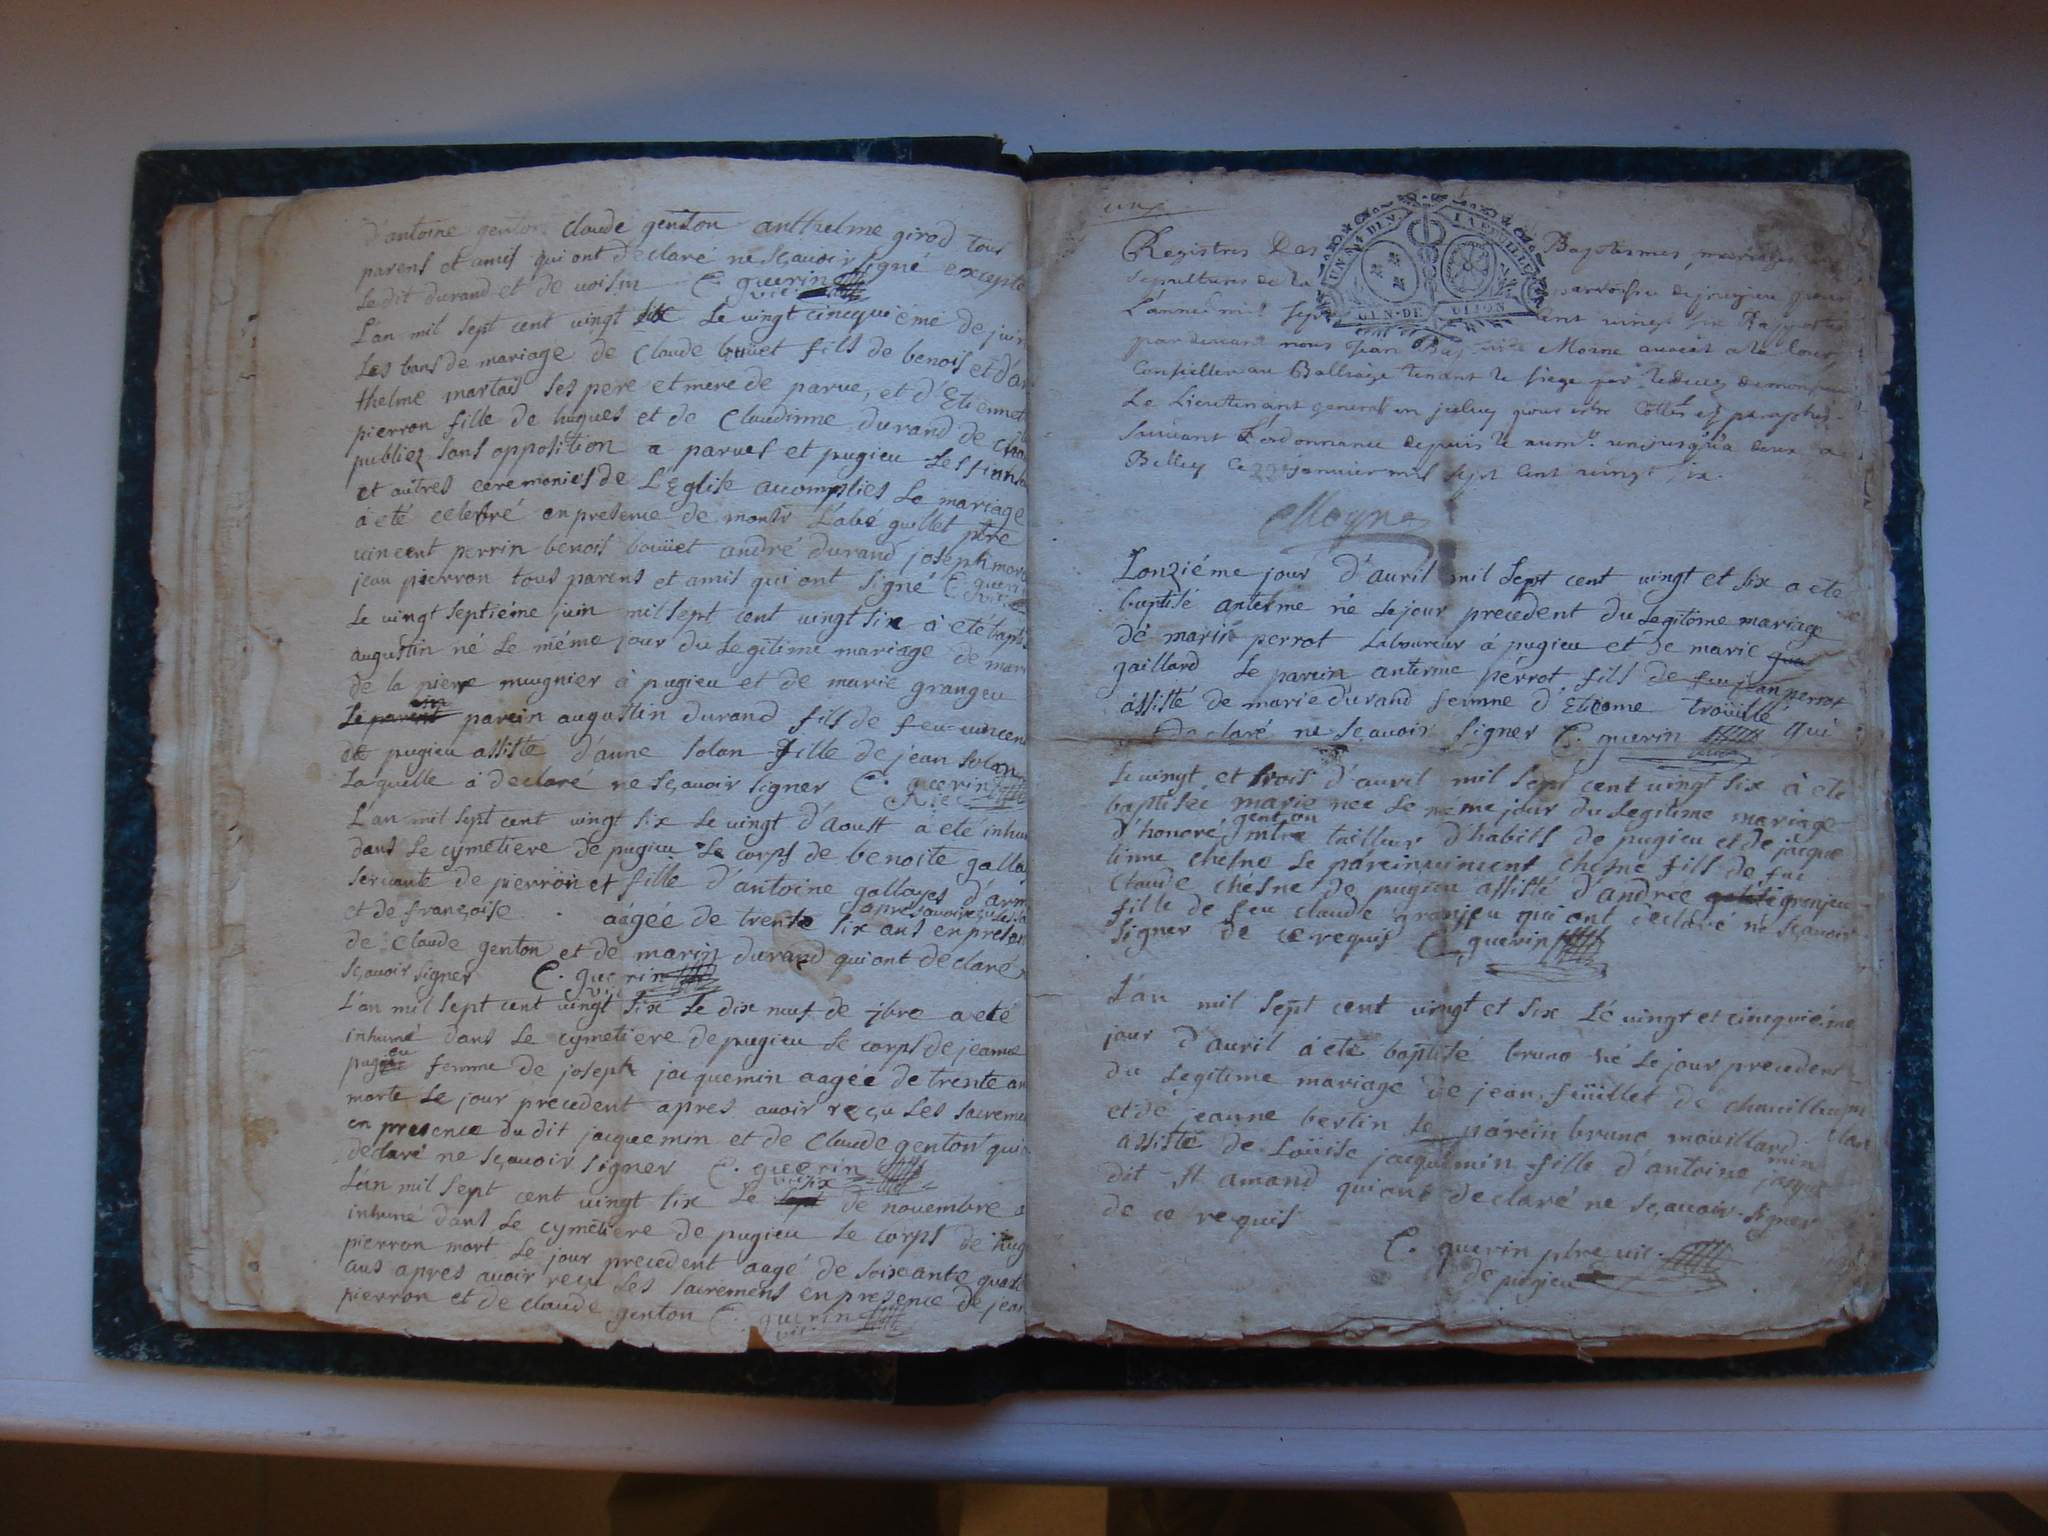 d'antoine genton claude genton anthelme girod tous
parens et amis qui ont declaré ne sçavoir signé excepté
le dit durand et de voisin C. guerin vic.
L'an mil sept cent vingt six Le vingt cincquiéme de juin
Les bans de mariage de claude boüet fils de benois et d'an
thelme martais ses pere et mere de parue, et d'Etiennet
pierron fille de hugues et de Claudinne durand de
publiez sans opposition a parues et pugieu Les
et autres ceremonies de L'Eglise acomplies Le mariage
à eté celebré en presence de monsr L'abé guillet ptre
vincent perrin benois boüet andré durand joseph
jean pierron tous parens et amis qui ont signé C. guerin
Le vingt septiéme juin mil sept cent vingt six à eté bapti
augustin né Le méme jour du Legitime mariage de
de la pierre mugnier à pugieu et de marie grangeu
parein augustin durand fils de feu vincent
de pugieu assisté d'anne solan fille de jean solan
Laquelle à declaré ne sçavoir signer C. guerin
L'an mil sept cent vingt six Le vingt d'Aoust à eté inhu
dans Le cymetiere de pugieu Le corps de benoite
servante de pierron et fille d'antoine gallayes
et de françoise aâgée de trente six ans apres avoir reçu Les en presen
de claude genton et de marin durand qui ont declaré
sçavoir signer C. guerin
L'an mil sept cent vingt six Le dix neuf de 7bre a eté
inhumé dans Le cymetiere de pugieu Le corps de jeanne
pugieu femme de joseph jacquemin aagée de trente an
morte Le jour precedent apres avoir reçu Les sacremen
en presence du dit jacquemin et de Claude genton qui
declaré ne sçavoir signer C. guerin
L'an mil sept cent vingt six Le six de novembre a
inhumé dans Le cymetiere de pugieu Le corps de hug
pierron mort Le jour precedent aagé de soixante quat
ans apres avoir reçu Les sacremens en presence de jean
pierron et de claude genton C. guerin vic.
un
Registres Des Baptesmes mariages
sepultures de la parroisse de pugieu pour
L'année mil sept cent vingt six Rapporté
par devant nous Jean Baptiste Moine avocat a la Cour
Conseiller au Balliage tenant le siege par
Le Lieutenant general pour estre Cottés et paraphés
suivant L'ordonnance depuis le num. un jusqu'a deux a
Belley ce 22 janvier mil sept cent vingt six.
Moyne
UN NF. DEN. LA FEUILLE
GEN. DE DIJON
Lonziéme jour d'avril mil sept cent vingt et six a eté
baptisé anterme né Le jour precedent du Legitime mariage
de marin perrot Laboureur à pugieu et de marie
gaillard Le parein anterme perrot fils de feu jean perrot
assisté de marie durand femme d'Etiene troüillé qui
declaré ne sçavoir signer C. guerin
Le vingt et trois d'avril mil sept cent vingt six à eté
baptisée marie née Le méme jour du Legitime mariage
d'honoré genton mtre tailleur d'habits de pugieu et de jacque
linne chesne Le parein vincent chesne fils de feu
Claude chesne de pugieu assisté d'andree granjeu
fille de feu claude granjeu qui ont declaré ne sçavoir
signer de ce requis C. guerin
L'an mil sept cent vingt et six Lé vingt et cincquiéme
jour d'avril à eté baptisé bruno né Le jour precedent
du Legitime mariage de jean feüillet de
et de jeanne bertin Le parein bruno mouillard
assisté de Loüise jacquemin fille d'antoine jacquemin
dit st amand qui ont declaré ne sçavoir signer
de ce requis
C. guerin ptre vic.
de pugieu